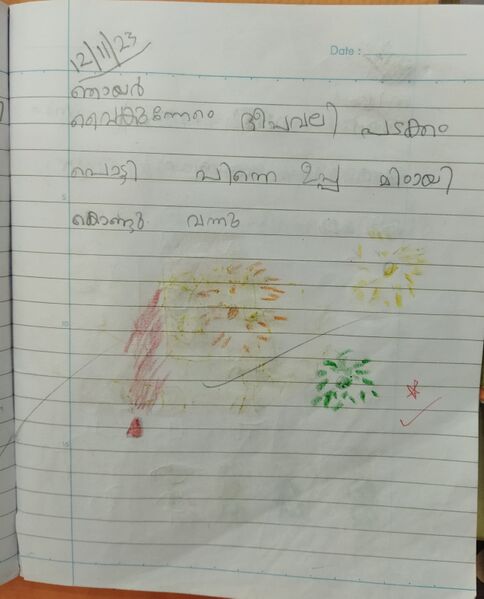 12/11/23
Date :
ഞായർ
വൈകുന്നേരം ദീപവലി പടക്കം
പൊട്ടി പിന്നെ ഉപ്പ മിഠായി
കൊണ്ടു വന്നു